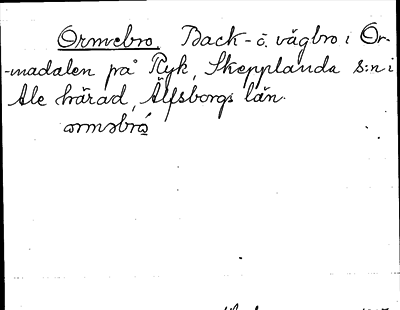 Ormebro. Back- o. vägbro i Or-
-madalen på Ryk, Skepplanda s:n i
Ale härad, Älfsborgs län.